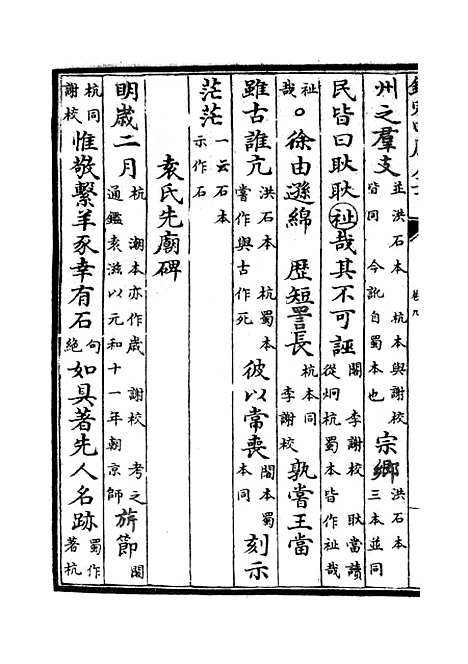 州之羣支並洪石本 杭本與謝校皆同 今訛自蜀本也宗鄉洪石本三本並同
民皆曰耿耿祉哉其不可誣閣 李謝校 耿當讀從炯杭蜀本皆作祉哉
祉哉○徐由遜綿 歴短詈長杭本同李謝校孰嘗王當
雖古誰亢洪石本 杭蜀本嘗作與古作死彼以常喪閣本蜀本同刻示
茫茫一云石本示作石
袁氏先廟碑
明歲二月杭 潮本亦作歲 謝校 考之通鑑袁滋以元和十一年朝京師旂節閣
杭同謝校惟敬繫羊豕幸有石句絶如具著先人名跡蜀作著杭
卷九